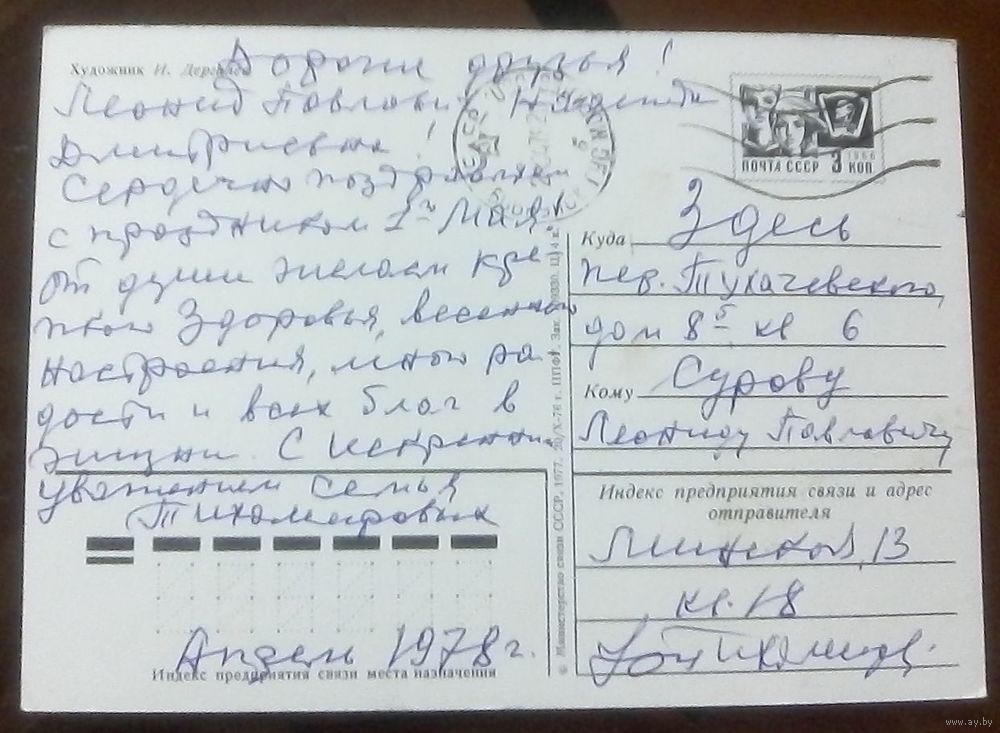 Художник И.
Дорогие друзья!
Леонид Павлович, Надежда
Дмитриевна!
Сердечно поздравляем
с праздником 1го Мая!
От души желаем кре
пкого Здоровья, весеннего
настроения, много ра
дости и всех благ в
жизни. С искренним
уважением семья
Тихомировых
Апрель 1978 г.
Индекс предприятия связи места назначения
© Министерство связи СССР, 1977. 20/X-76 г. ППФГ. Зак. Ц. 4 к.
ПОЧТА СССР 3 КОП
1966
Куда Здесь
пер. Тухачевского,
дом 8 5 кв 6
Кому Сурову
Леониду Павловичу
Индекс предприятия связи и адрес
отправителя
Минская, 13
кв. 18
Тихомиров.
www.ay.by